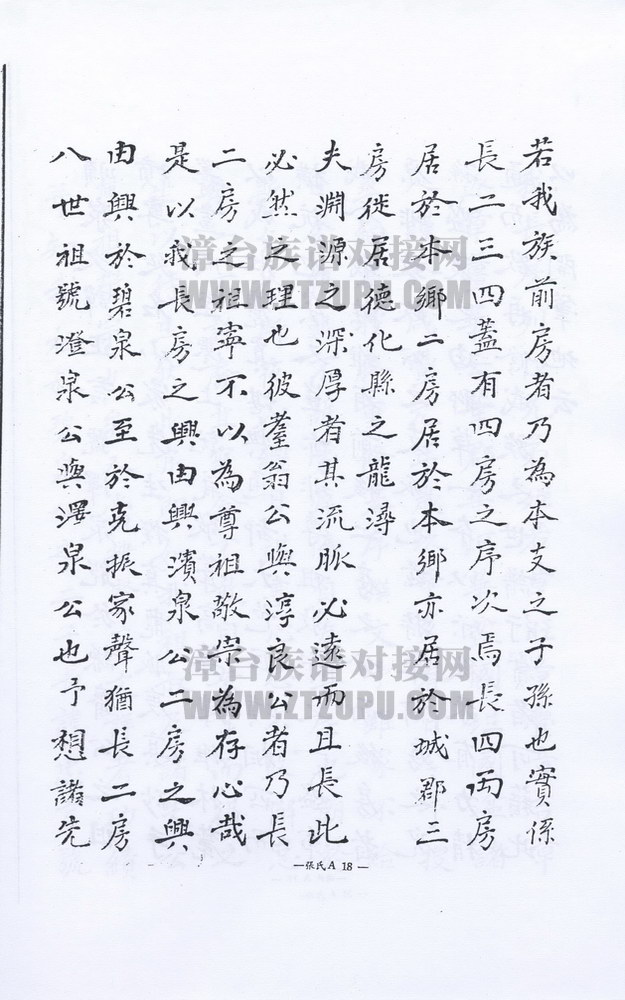 若我族前房者乃為本支之子孫也實係
長二三四蓋有四房之序次焉長四兩房
居於本鄉二房居於本鄉亦居於城郡三
房徙居德化縣之龍潯
夫淵源之深厚者其流脈必遠而且長此
必然之理也彼耋翁公與淳良公者乃長
二房之祖寧不以為尊祖敬崇為存心哉
是以我長房之興由興濱泉公二房之興
由興於碧泉公至於克振家聲猶長二房
八世祖號澄泉公與澤泉公也予想諸先
—張氏A 18—
漳台族谱对接网
WWW.ZTZUPU.COM
漳台族谱对接网
WWW.ZTZUPU.COM